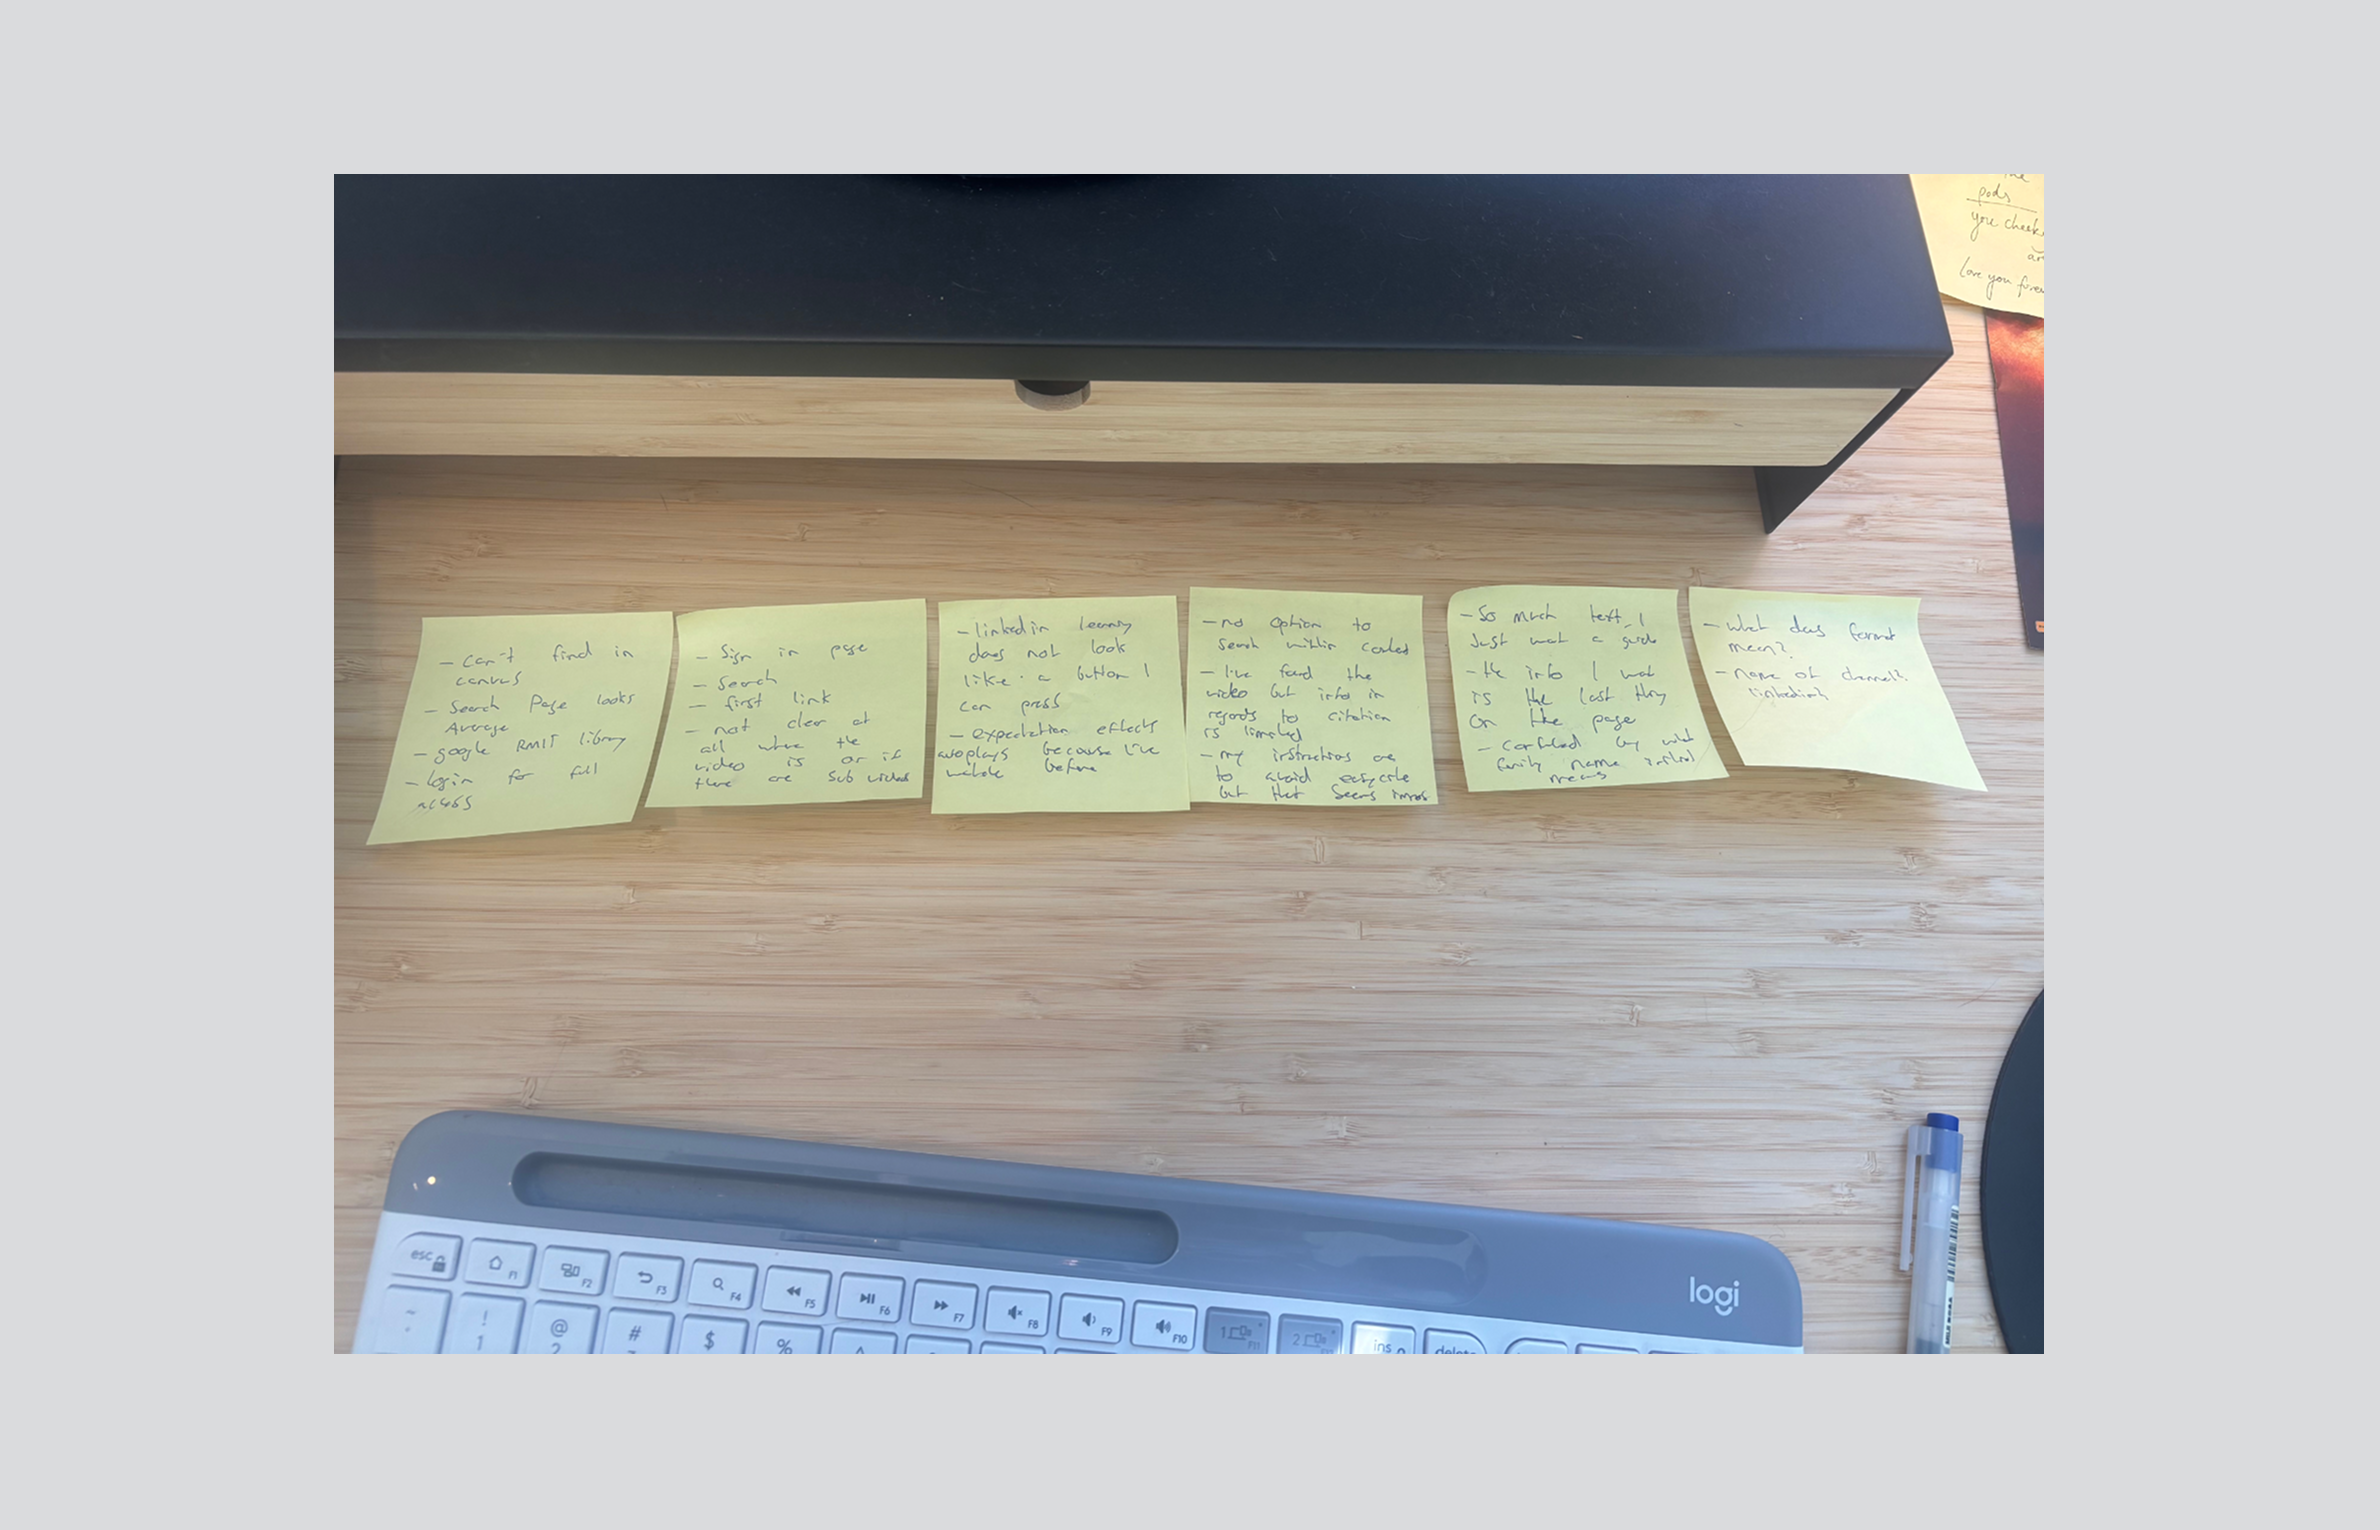 - Can't find in
canvas
- Search Page looks
Average
- google RMIT library
- login for full
access
- Sign in page
- Search
- first link
- not clear at
all where the
video is or if
there are sub videos
- linkedin learning
does not look
like a button I
can press
- expectation effects
autoplays because I've
before
- no option to
search within content
- I've found the
video but info in
regards to citation
is limited
- my instructions are
to avoid easycite
but that seems
- So much text, I
Just want a guide
- the info I want
is the last thing
on the page
- confused by what
family name initial
means
- what does format
mean?
- name of channel?
linkedin?
pods
you cheek
love you
logi
esc F1 F2 F3 F4 F5 F6 F7 F8 F9 F10 1 2 ins delete
~ ! 1 @ 2 # $ %